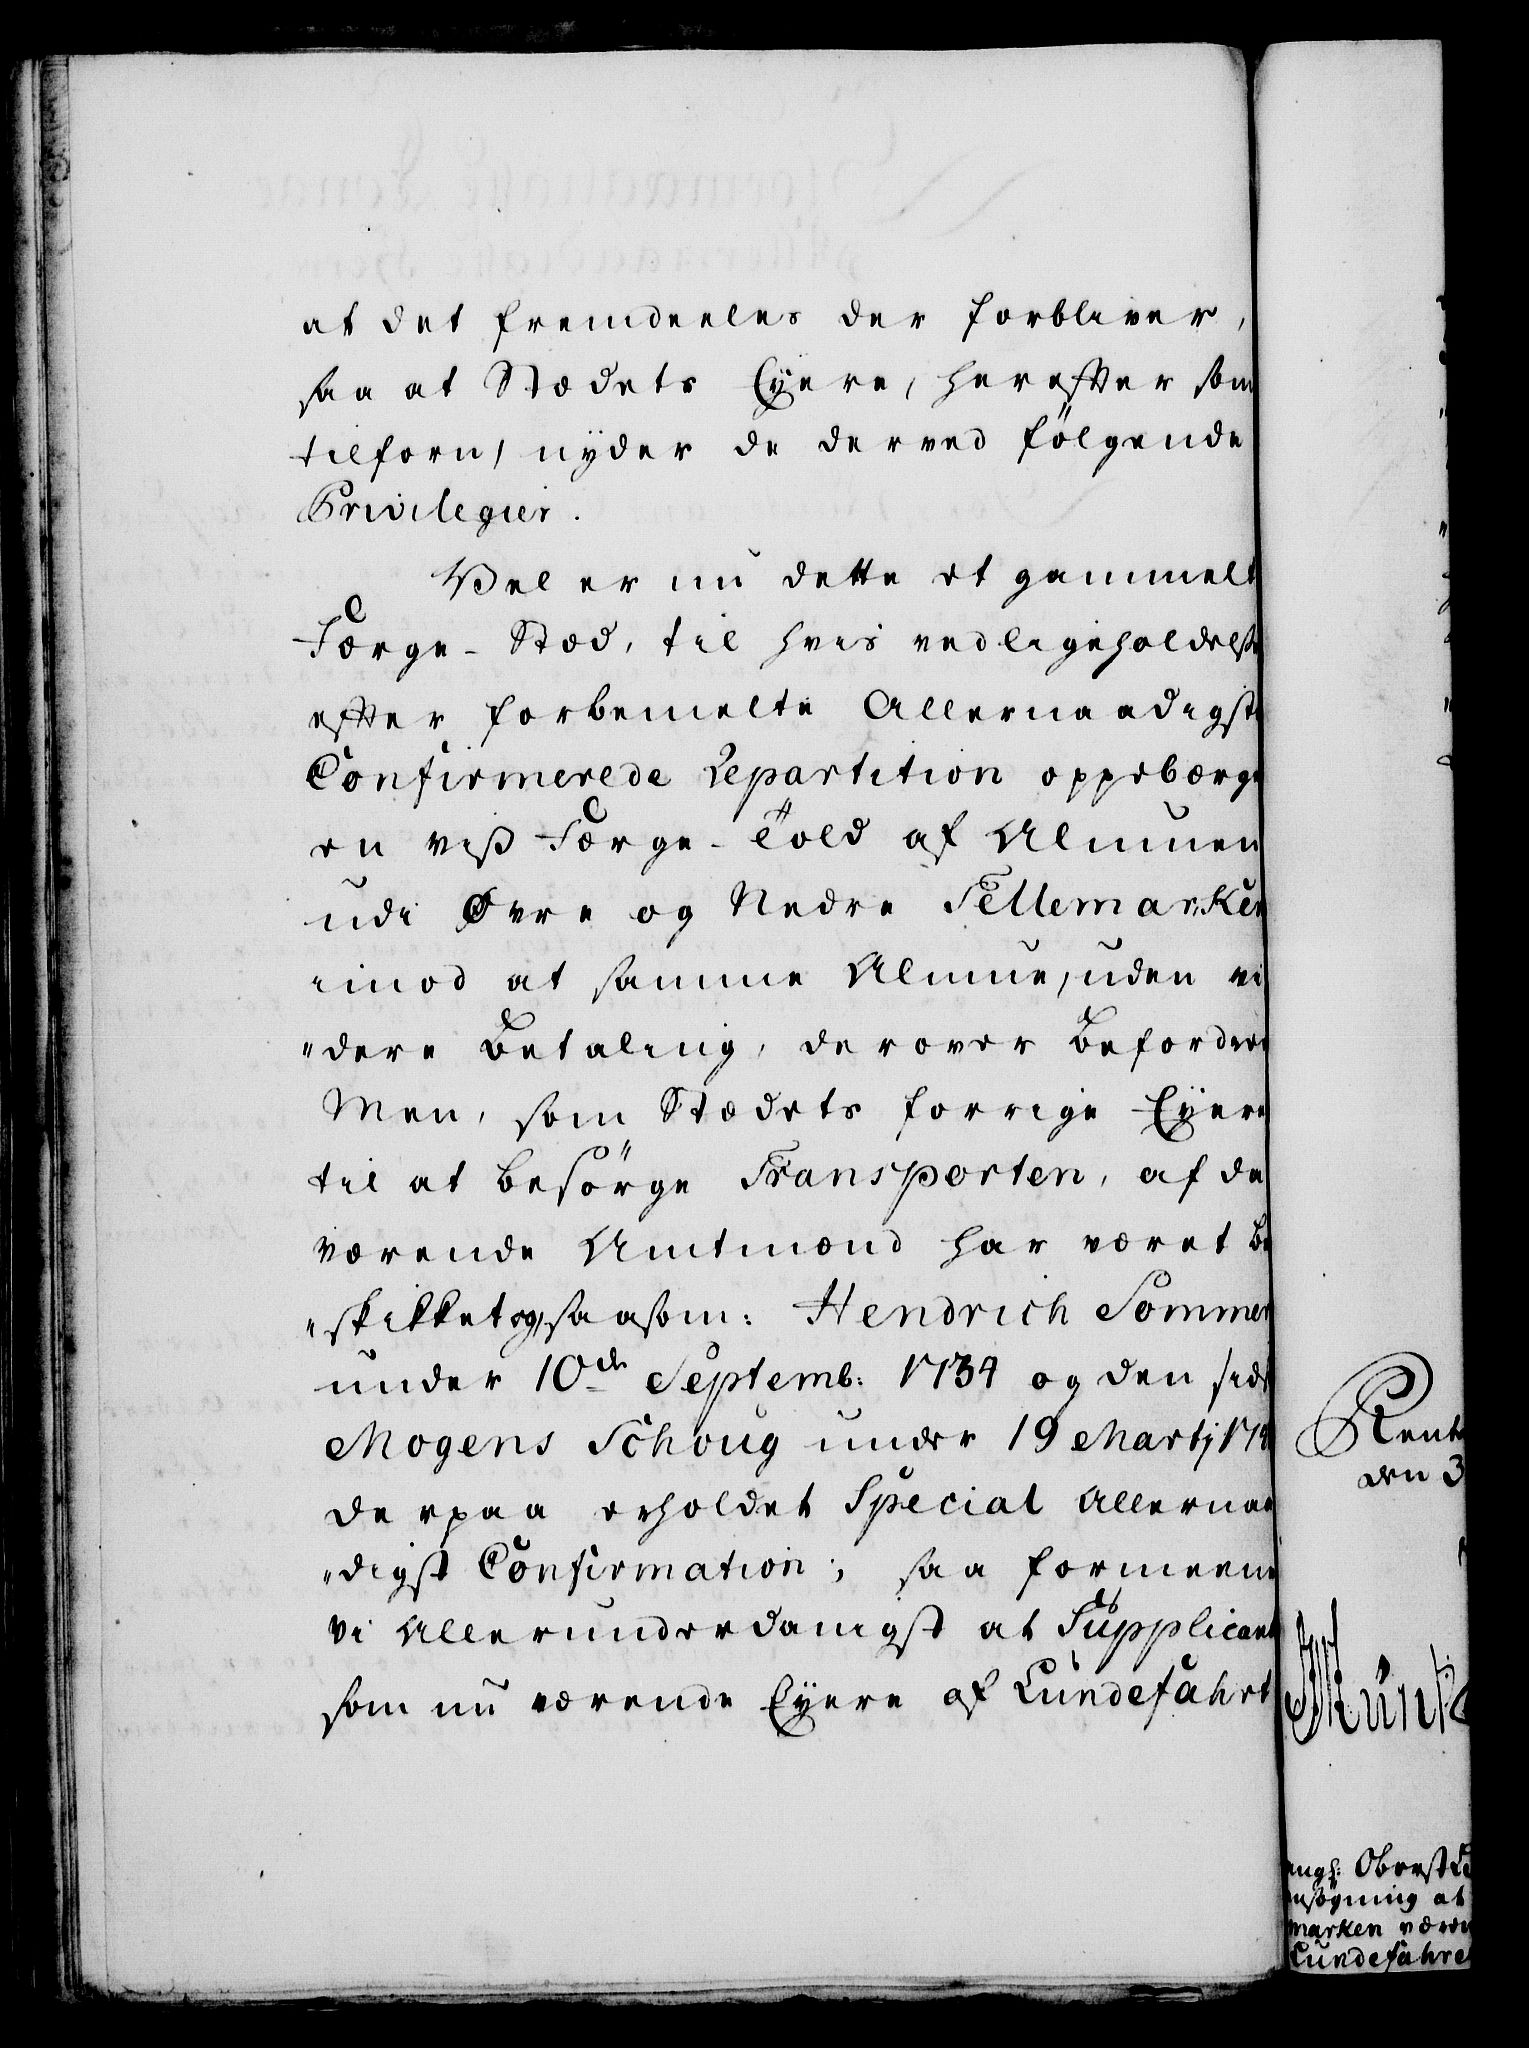 at det fremdeeles der forbliver,
saa at Stædets Eyere, herefter som
tilforn, nyder de derved fölgende
Privilegier.
Vel er nu dette et gammelt
Færge-Stæd, til hvis vedligeholdelse
efter forbemelte Allernaadigste
Confirmerede Repartition oppebærge
en viss Færge-Told af Almuen
udi Øvre og Nedre Tellemarken
imod at samme Almue, uden vi
"dere Betaling, derover befordres
Men, som Stædets forrige Eyere
til at besörge Transporten, af de
værende Amtmænd har været be
"skikket og, saasom: Hendrich Sommer
under 10de Septemb: 1734 og den sidst
Mogens Schoug under 19 Martj 174
derpaa erholdet Special Allernaa
"digst Confirmation; saa formeene
vi Allerunderdanigst at Supplicant
som nu værende Eyere af Lundefahrt
Rent
den 3
Munk
angh: Oberst Li
nsögning at
marken være
Lundefahre